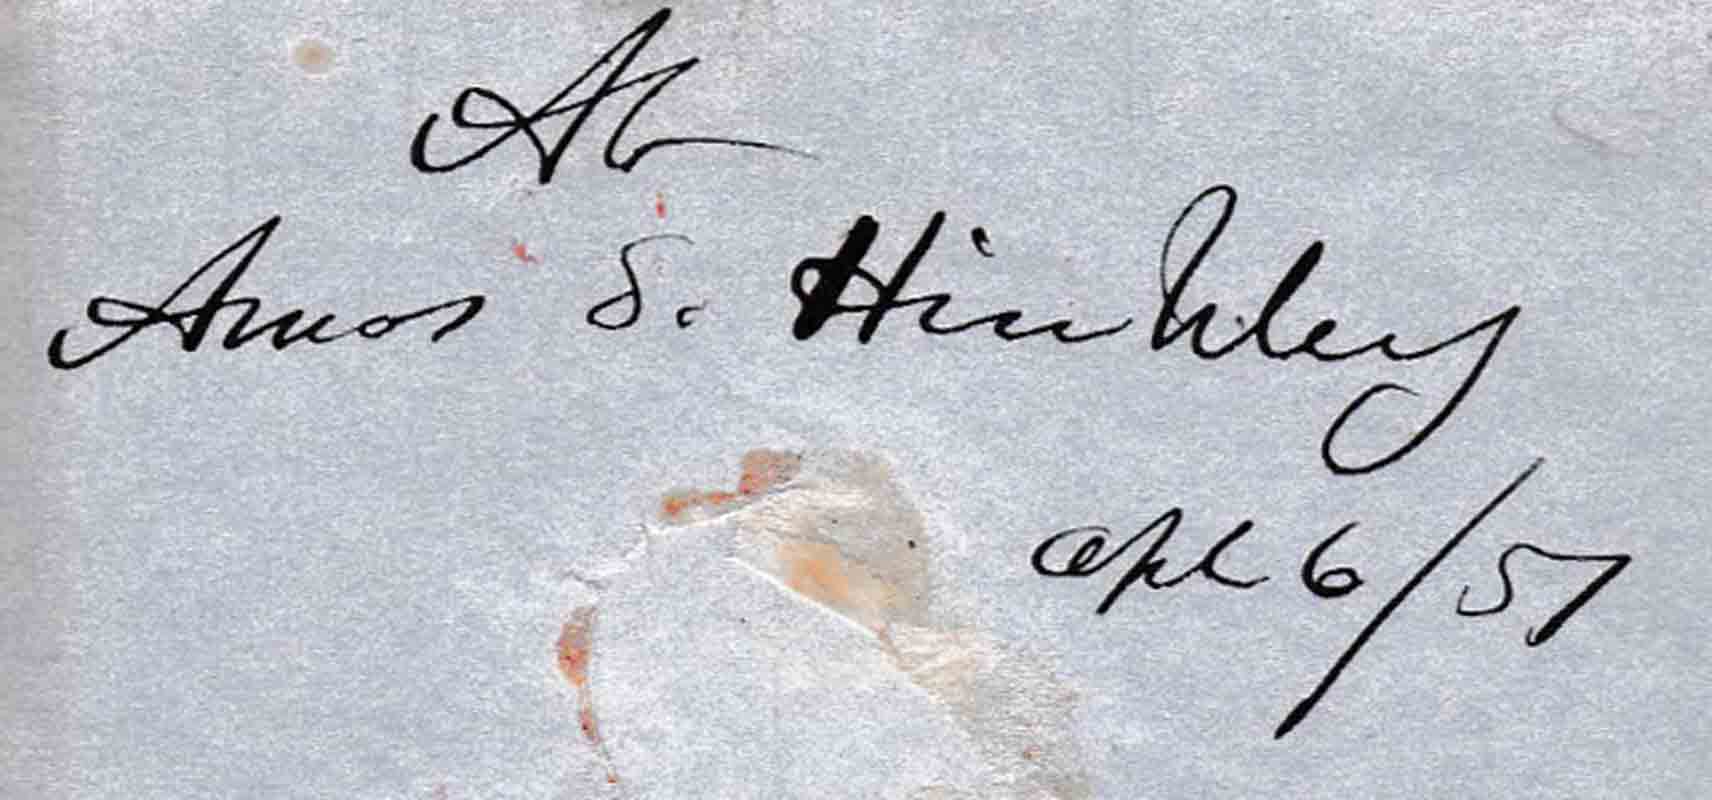 Amos S. Hinkley
Apl 6/57